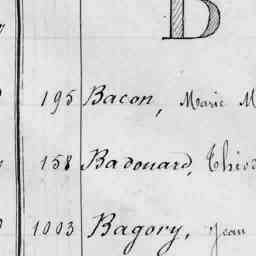 B
195 Bacon, Marie M
158 Badouard,
1003 Bagory, Jean